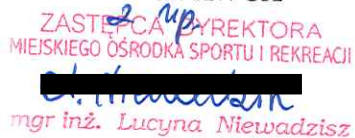 z up.
ZASTĘPCA DYREKTORA
MIEJSKIEGO OŚRODKA SPORTU I REKREACJI
mgr inż. Lucyna Niewadzisz